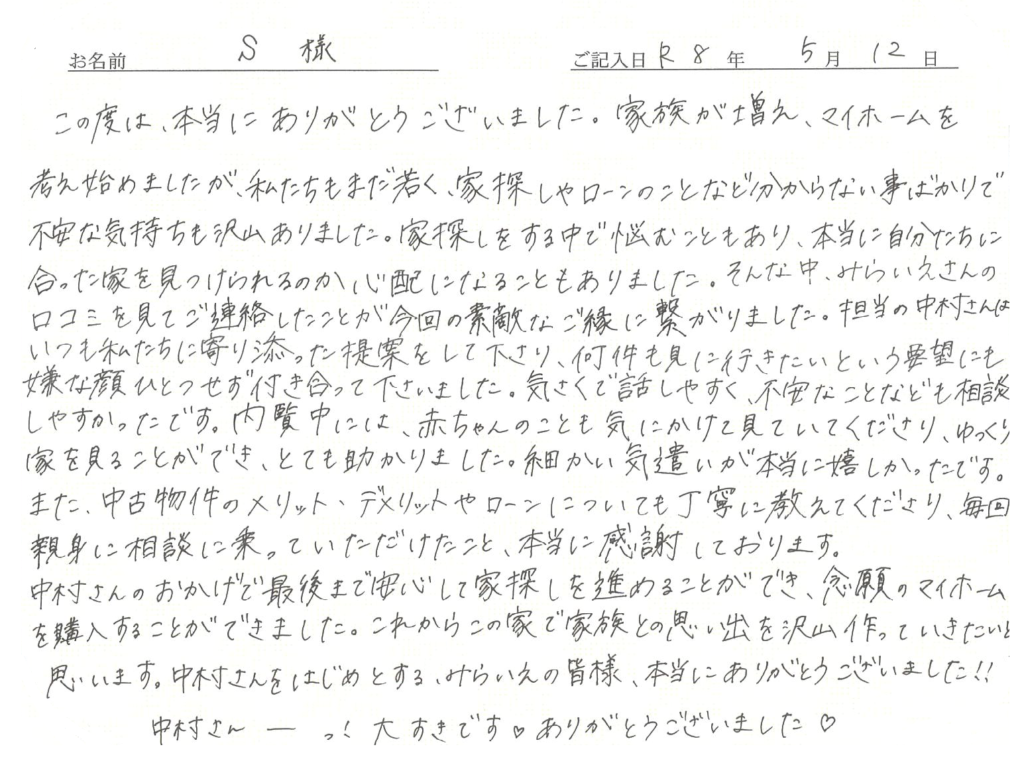 お名前 S 様 ご記入日 R 8 年 5 月 12 日
この度は、本当にありがとうございました。家族が増え、マイホームを
考え始めましたが、私たちもまだ若く、家探しやローンのことなど分からない事ばかりで
不安な気持ちも沢山ありました。家探しをする中で悩むこともあり、本当に自分たちに
合った家を見つけられるのか心配になることもありました。そんな中、みらいえさんの
口コミを見てご連絡したことが今回の素敵なご縁に繋がりました。担当の中村さんは
いつも私たちに寄り添った提案をして下さり、何件も見に行きたいという要望にも
嫌な顔ひとつせず付き合って下さいました。気さくで話しやすく、不安なことなども相談
しやすかったです。内覧中には、赤ちゃんのことも気にかけて見ていてくださり、ゆっくり
家を見ることができ、とても助かりました。細かい気遣いが本当に嬉しかったです。
また、中古物件のメリット・デメリットやローンについても丁寧に教えてくださり、毎回
親身に相談に乗っていただけたこと、本当に感謝しております。
中村さんのおかげで最後まで安心して家探しを進めることができ、念願のマイホーム
を購入することができました。これからこの家で家族との思い出を沢山作っていきたいと
思います。中村さんをはじめとする、みらいえの皆様、本当にありがとうございました!!
中村さんーっ!大すきです♡ありがとうございました♡